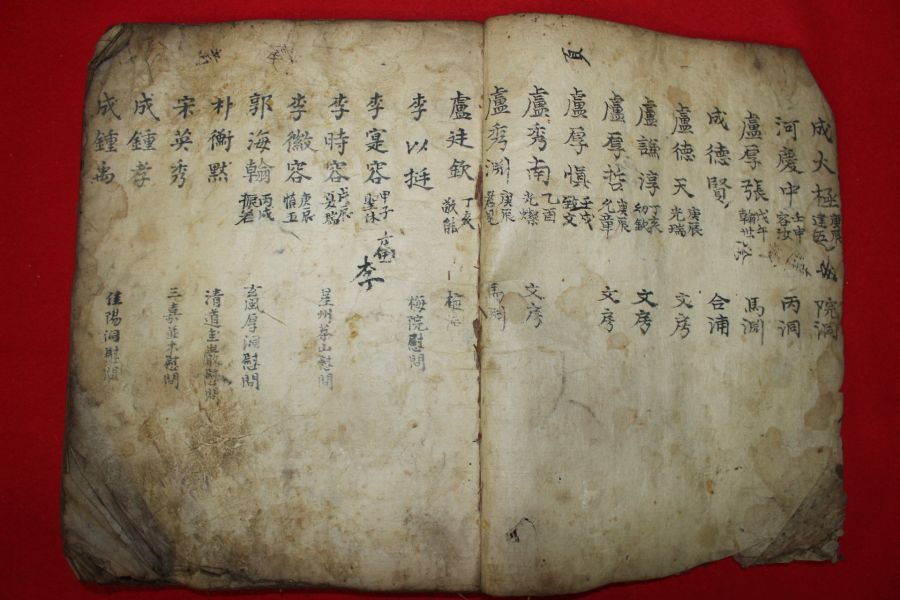 成大極 庚辰 院洞
河慶中 壬申 容汝 丙洞
盧厚張 戊午 翰世 馮淵
成德賢 合浦
盧德天 庚辰 光瑞 文序
盧謙淳 丁亥 幼敏 文序
盧厚哲 庚辰 允章 文序
盧厚愼 壬戌 致文
盧秀南 乙酉 光燦 文序
盧秀淵 庚辰
盧廷欽 丁亥 敬能
李以挺 梅院慰問
李寔容 甲子 聖休
李
李時容 戊辰 星州茅山慰問
李徽容 庚辰 愼五
郭海翰 丙戌 振若 玄風厚洞慰問
朴衡默 清道
宋英秀 三嘉並木慰問
成鍾孝
成鍾禹 佳陽洞慰問